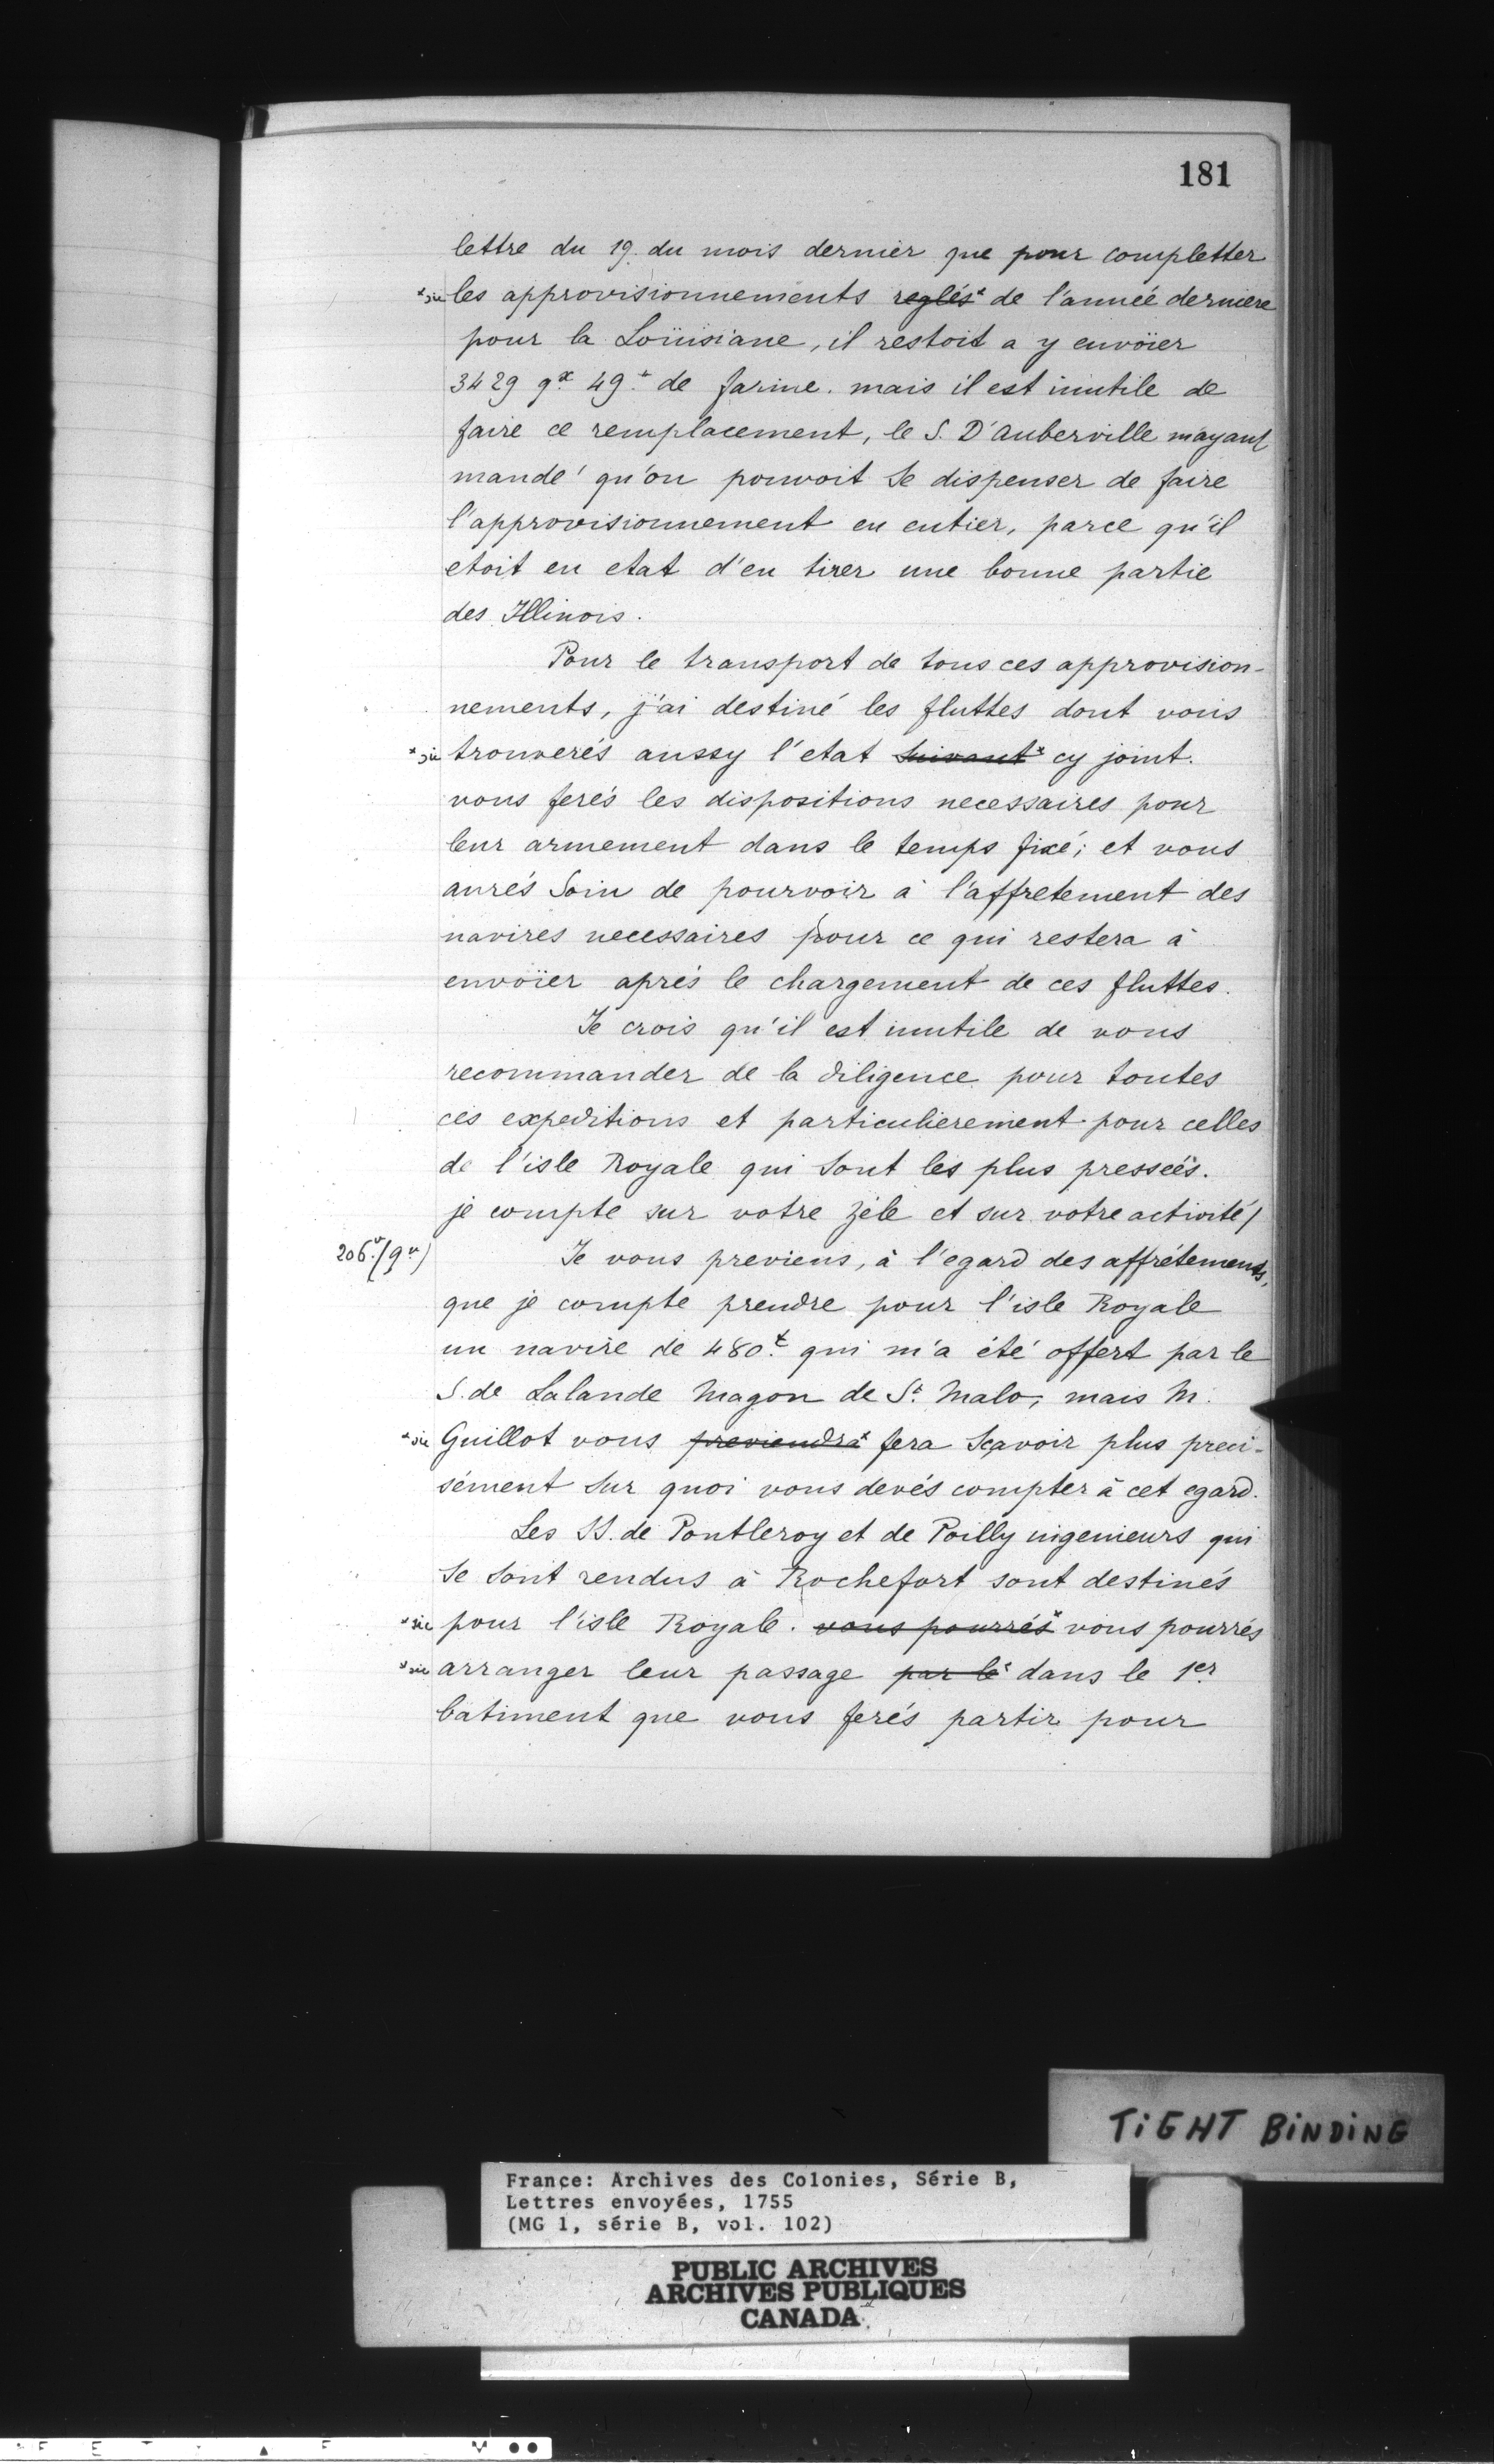 181
lettre du 19. du mois dernier que pour completter
*sic les approvisionnements reglés* de l'année derniere
pour la Loüisiane, il restoit a y envoïer
3429 qx 49.t de farine. mais il est inutile de
faire ce remplacement, le S. D'auberville m'ayant
mandé qu'on pouvoit Se dispenser de faire
l'approvisionnement en entier, parce qu'il
etoit en etat d'en tirer une bonne partie
des Illinois.
Pour le transport de tous ces approvision-
nements, j'ai destiné les fluttes dont vous
*sic trouverés aussy l'etat Suivant* cy joint.
vous ferés les dispositions necessaires pour
leur armement dans le temps fixé; et vous
aurés Soin de pourvoir à l'affretement des
navires necessaires pour ce qui restera à
envoïer aprés le chargement de ces fluttes.
Je crois qu'il est inutile de vous
recommander de la diligence pour toutes
ces expeditions et particulierement pour celles
de l'isle Royale qui Sont les plus pressées.
je compte sur votre zéle et sur votre activité/
206.v (9v) Je vous previens, à l'egard des affrétements,
que je compte prendre pour l'isle Royale
un navire de 480.t qui m'a été offert par le
S. de Lalande Magon de St. Malo; mais M.
*sic Guillot vous previendra* fera Sçavoir plus preci-
sément Sur quoi vous devés compter à cet egard.
Les SS. de Pontleroy et de Poilly ingenieurs qui
Se Sont rendus à Rochefort sont destinés
*sic pour l'isle Royale. vous pourrés* vous pourrés
*sic arranger leur passage par le* dans le 1er.
batiment que vous ferés partir pour
TiGHT BiNDiNG
France: Archives des Colonies, Série B,
Lettres envoyées, 1755
(MG 1, série B, vol. 102)
PUBLIC ARCHIVES
ARCHIVES PUBLIQUES
CANADA